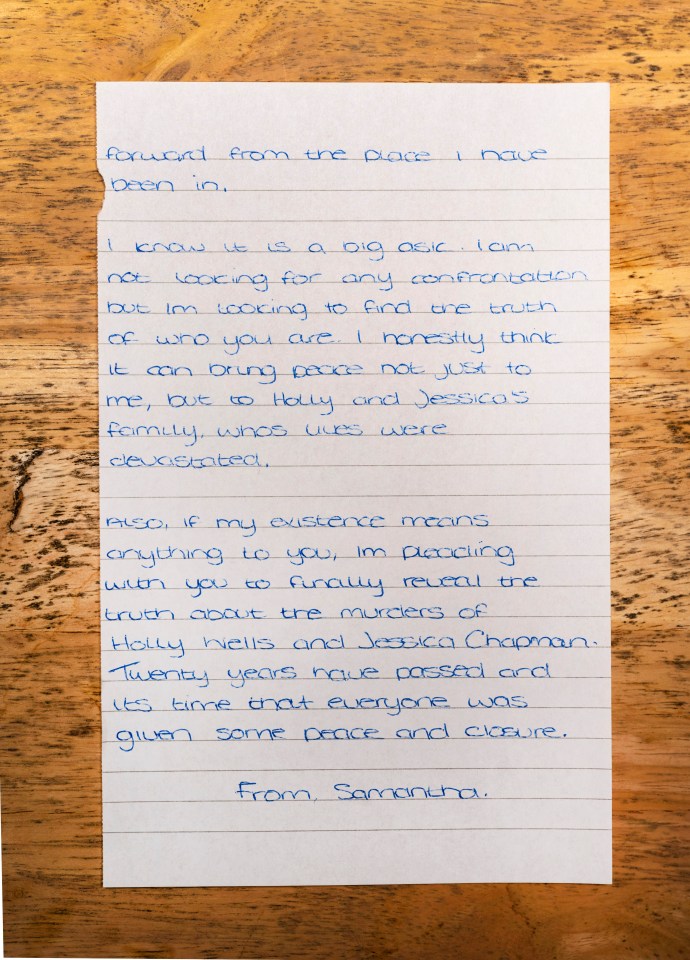 forward from the place i have
been in.
I know it is a big ask. I am
not looking for any confrontation
but Im looking to find the truth
of who you are. I honestly think
it can bring peace not just to
me, but to Holly and Jessica's
family, whos lives were
devastated.
Also, if my existence means
anything to you, Im pleading
with you to finally reveal the
truth about the murders of
Holly Wells and Jessica Chapman.
Twenty years have passed and
its time that everyone was
given some peace and closure.
From, Samantha.